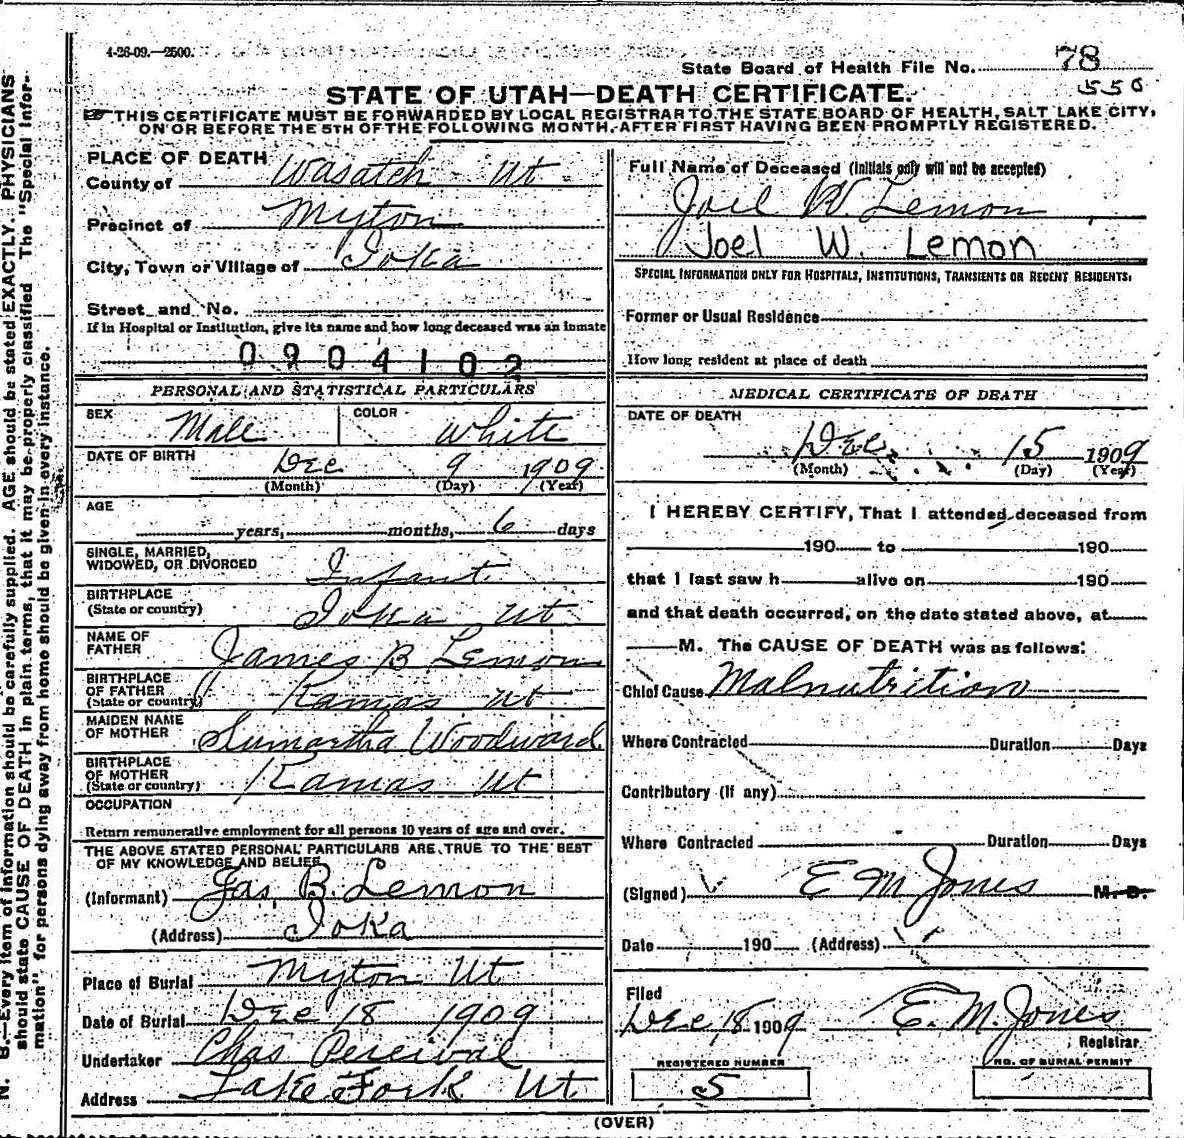 4-26-09.—2500.
State Board of Health File No. 78
550
STATE OF UTAH—DEATH CERTIFICATE.
☞ THIS CERTIFICATE MUST BE FORWARDED BY LOCAL REGISTRAR TO THE STATE BOARD OF HEALTH, SALT LAKE CITY,
ON OR BEFORE THE 5TH OF THE FOLLOWING MONTH, AFTER FIRST HAVING BEEN PROMPTLY REGISTERED.
N. B.—Every item of information should be carefully supplied. AGE should be stated EXACTLY. PHYSICIANS
should state CAUSE OF DEATH in plain terms, that it may be properly classified. The "Special Infor-
mation" for persons dying away from home should be given in every instance.
PLACE OF DEATH
County of Wasatch Ut
Precinct of Myton
City, Town or Village of Ioka
Street and No.
If in Hospital or Institution, give its name and how long deceased was an inmate
0904102
PERSONAL AND STATISTICAL PARTICULARS
SEX Male COLOR White
DATE OF BIRTH Dec 9 1909
(Month) (Day) (Year)
AGE
years, months, 6 days
SINGLE, MARRIED,
WIDOWED, OR DIVORCED Infant
BIRTHPLACE
(State or country) Ioka Ut
NAME OF
FATHER James B. Lemon
BIRTHPLACE
OF FATHER
(State or country) Kamas Ut
MAIDEN NAME
OF MOTHER Sumartha Woodward
BIRTHPLACE
OF MOTHER
(State or country) Kamas Ut
OCCUPATION
Return remunerative employment for all persons 10 years of age and over.
THE ABOVE STATED PERSONAL PARTICULARS ARE TRUE TO THE BEST
OF MY KNOWLEDGE AND BELIEF
(Informant) Jas. B. Lemon
(Address) Ioka
Place of Burial Myton Ut
Date of Burial Dec 18 1909
Undertaker Chas Percival
Address Lake Fork Ut
Full Name of Deceased (Initials only will not be accepted)
Joel W. Lemon
Joel W. Lemon
SPECIAL INFORMATION ONLY FOR HOSPITALS, INSTITUTIONS, TRANSIENTS OR RECENT RESIDENTS:
Former or Usual Residence
How long resident at place of death
MEDICAL CERTIFICATE OF DEATH
DATE OF DEATH
Dec. 15 1909
(Month) (Day) (Year)
I HEREBY CERTIFY, That I attended deceased from
190 to 190
that I last saw h alive on 190
and that death occurred, on the date stated above, at
M. The CAUSE OF DEATH was as follows:
Chief Cause Malnutrition
Where Contracted Duration Days
Contributory (if any)
Where Contracted Duration Days
(Signed) E M Jones M. D.
Date 190 (Address)
Filed
Dec 18 1909 E. M. Jones
Registrar
REGISTERED NUMBER NO. OF BURIAL PERMIT
5
(OVER)